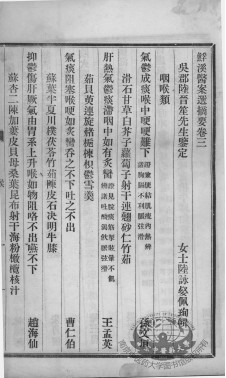 鮃溪醫案選摘要卷三
吳郡陸晉笙先生鑒定　女士陸詠䇾佩珣輯
咽喉類
氣鬱成痰喉中哽哽難下
滑石甘草白芥子蘿蔔子射干連翹砂仁竹茹
肝熱氣鬱痰滯咽中如有炙臠　王孟英
茹貝萸連旋赭楝枳鬱雪羹
氣痰阻塞喉哽如炙臠吞之不下吐之不出　曹仁伯
蘇葉半夏川樸茯苓竹茹陳皮石决明牛膝
抑鬱傷肝厥氣由胃系上升喉如物阻咯不出嚥不下　趙海仙
蘇杏二陳加薑皮貝母桑葉昆布射干海粉橄欖核汁